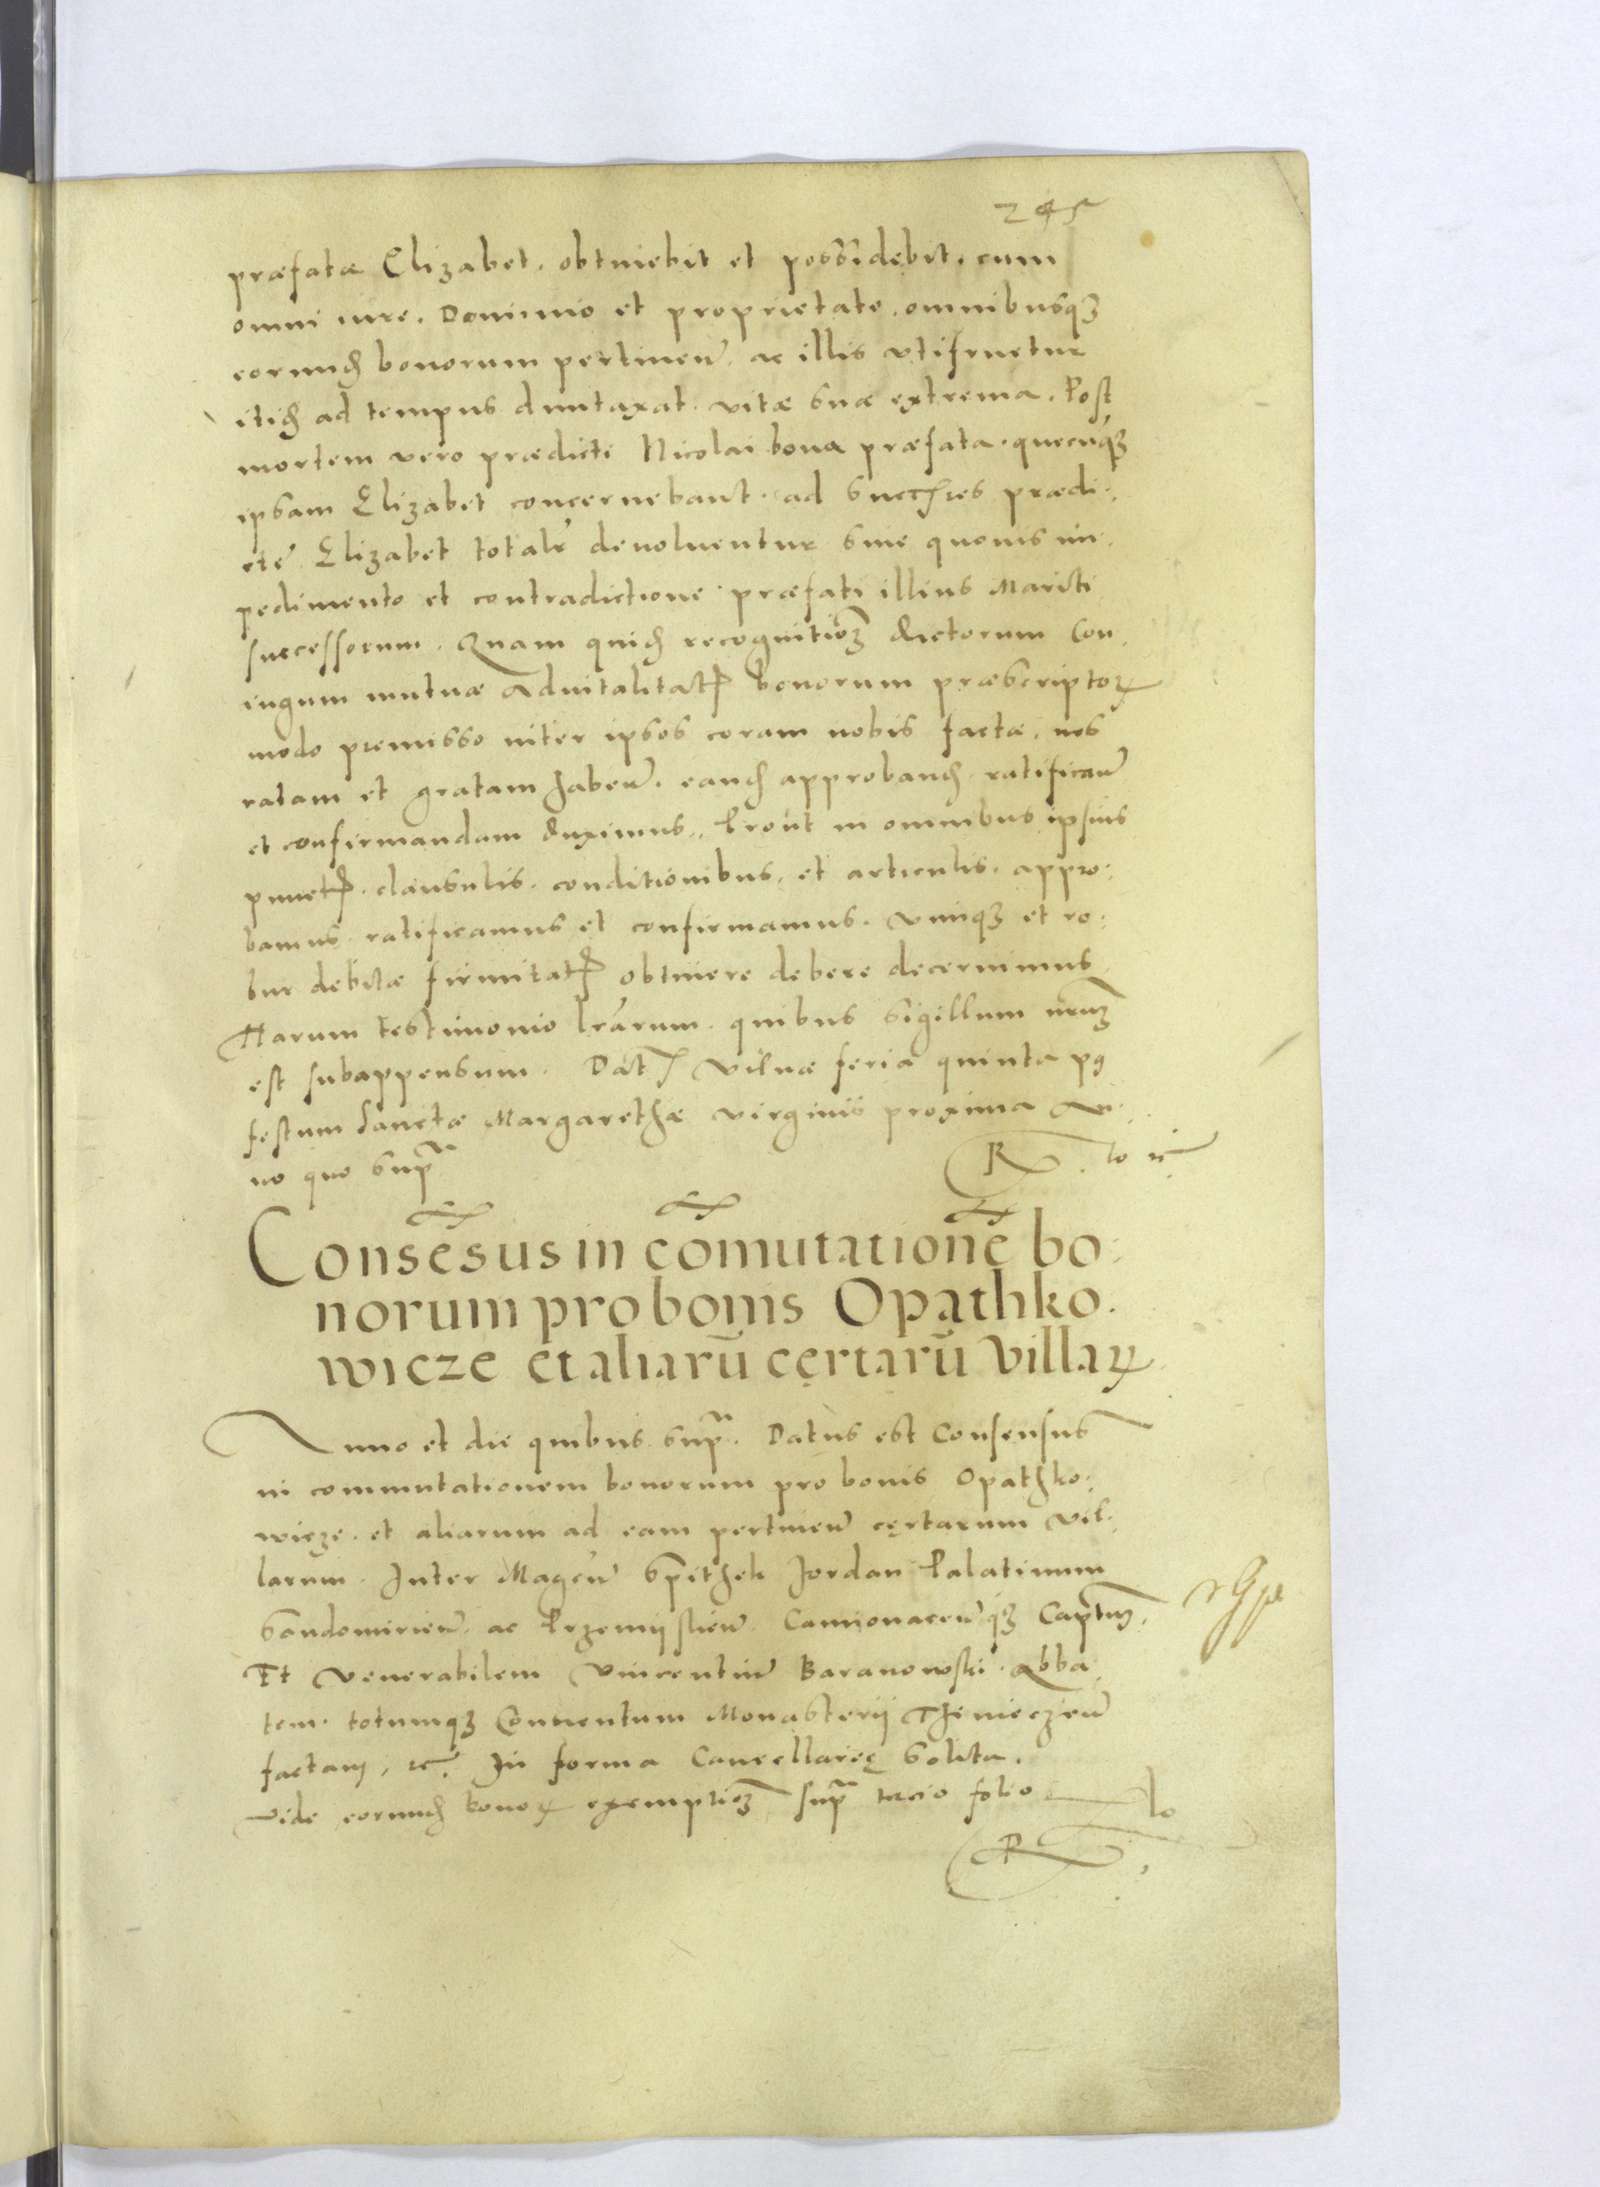 245
præfatæ Elizabet. obtinebit et possidebit. cum
omni iure. Dominio et proprietate. omnibusqꝫ
eorund bonorum pertinen̄. ac illis utifruetur
itid ad tempus duntaxat. vitæ suæ extrema. Post
mortem vero prædicti Nicolai bona præfata. quecūqꝫ
ipsam Elizabet concernebant. ad succ̄res prædi.
cte Elizabet totalr̄ devoluentur sine quovis im.
pedimento et contradictione præfati illius Mariti
successorum. Quam quid recognitioꝫ dictorum Con.
iugum mutuæ aduitalitatꝭ bonorum præscriptoꝝ
modo premisso inter ipsos coram nobis factæ. nos
ratam et gratam haben̄. eand approband. ratifican̄
et confirmandam duximus. Prout in omnibus ipsius
punctꝭ. clausulis. conditionibus. et articulis. appro.
bamus. ratificamus et confirmamus. vimqꝫ et ro.
bur debitæ firmitatꝭ obtinere debere decernimus.
Harum testimonio lrārum. quibus sigillum nrūꝫ
est subappensum. Datꝭ Vilnæ feria quinta pꝰ
festum Sanctæ Margarethæ virginis proxima An.
no quo supᵃ
R to n̄
Consēsus in cōmutationē bo.
norum pro bonis Opathko.
wicze et aliarū certarū villaꝝ
Anno et die quibus supᵃ. Datus est Consensus
in commutationem bonorum pro bonis Opathko.
wicze. et aliarum ad eam pertinen̄ certarum vil.
larum. Inter Magcū Spithek Jordan Palatinum
Sandomirien̄. ac Przemijslien̄. Camionacen̄qꝫ Captuꝫ.
Et Venerabilem Vincentiū Baranowski. Abba
tem. totumqꝫ Conuentum Monasterij Thiniecien̄
factam, ꝛc̄. In forma Cancellarię solita.
vide eorund bonoꝝ exemptioꝫ supᵃ tercio folio
R to